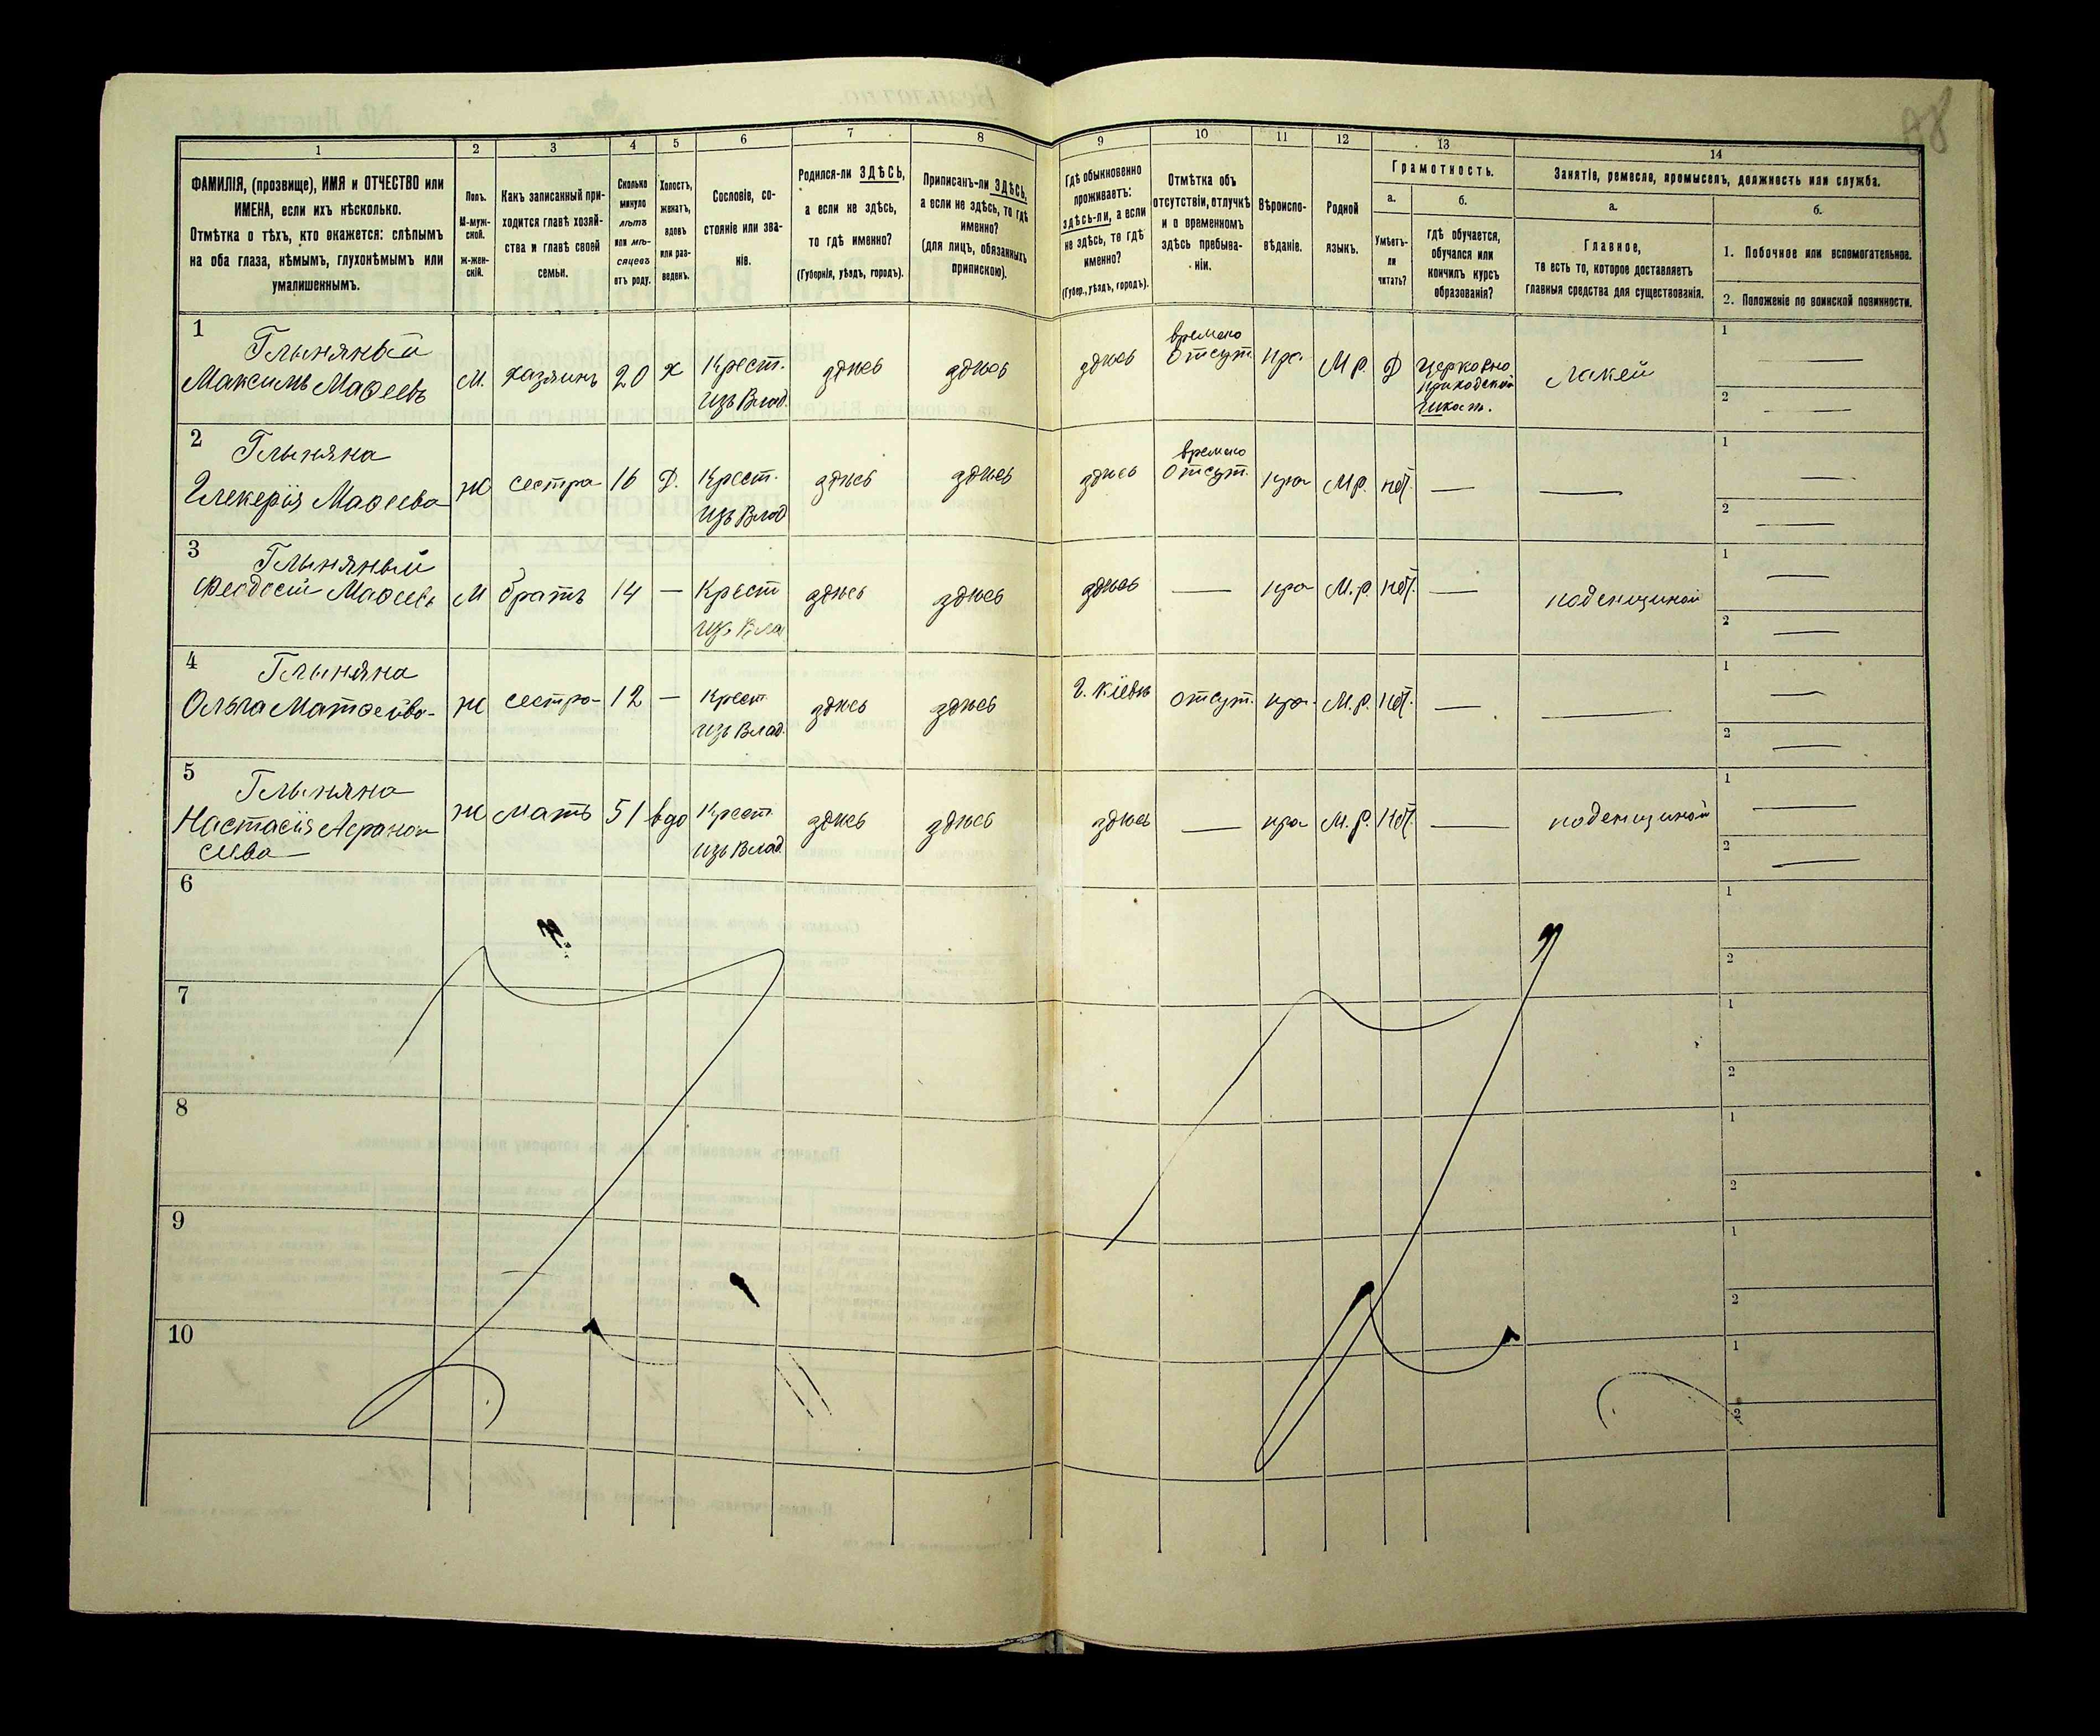 98
1 2 3 4 5 6 7 8 9 10 11 12 13 14
ФАМИЛІЯ, (прозвище), ИМЯ и ОТЧЕСТВО или
ИМЕНА, если ихъ нѣсколько.
Отмѣтка о тѣхъ, кто окажется: слѣпымъ
на оба глаза, нѣмымъ, глухонѣмымъ или
умалишеннымъ.
Полъ.
М-муж-
ской.
Ж-жен-
скій.
Какъ записанный при-
ходится главѣ хозяй-
ства и главѣ своей
семьи.
Сколько
минуло
лѣтъ
или мѣ-
сяцевъ
отъ роду.
Холостъ,
женатъ,
вдовъ
или раз-
веденъ.
Сословіе, со-
стояніе или зва-
ніе.
Родился-ли ЗДѢСЬ,
а если не здѣсь,
то гдѣ именно?
(Губернія, уѣздъ, городъ).
Приписанъ-ли ЗДѢСЬ,
а если не здѣсь, то гдѣ
именно?
(для лицъ, обязанныхъ
припискою).
Гдѣ обыкновенно
проживаетъ:
здѣсь-ли, а если
не здѣсь, то гдѣ
именно?
(Губер., уѣздъ, городъ).
Отмѣтка объ
отсутствіи, отлучкѣ
и о временномъ
здѣсь пребыва-
ніи.
Вѣроиспо-
вѣданіе.
Родной
языкъ.
Грамотность.
а.
Умѣетъ-
ли
читать?
б.
гдѣ обучается,
обучался или
кончилъ курсъ
образованія?
Занятіе, ремесло, промыселъ, должность или служба.
а.
Главное,
то есть то, которое доставляетъ
главныя средства для существованія.
б.
1. Побочное или вспомогательное.
2. Положеніе по воинской повинности.
1
Глыняный
Максимъ Маѳеевъ
М. хазяинъ 20 х Крест.
изъ Влад.
здѣсь здѣсь здѣсь
времено
отсут.
пра. М.р. Д
Церковно
приходской
школѣ.
лакей
1 —
2 —
2
Глыняна
Гликерія Маѳеева
Ж сестра 16 Д. Крест.
изъ Влад
здѣсь здѣсь здѣсь
времено
отсут.
пра М.р. нѣт. — —
1 —
2 —
3
Глыняный
Феодосій Маѳеевъ
М братъ 14 — Крест
изъ Вла
здѣсь здѣсь здѣсь — пра М.р. нѣт. — поденщиной
1 —
2 —
4
Глыняна
Ольга Матѳеева
Ж сестра 12 — Крест.
изъ Влад.
здѣсь здѣсь г. Кіевъ отсут. пра. М.р. нѣт. — —
1 —
2 —
5
Глыняна
Настасія Афанон
сиева
Ж мать 51 вдо Крест.
изъ Влад.
здѣсь здѣсь здѣсь — пра М.р. нѣт. — поденщиной
1 —
2 —
6
1
2
7
1
2
8
1
2
9
1
2
10
1
2